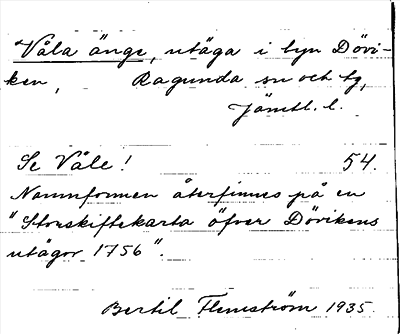 Våla änge, utäga i byn Dövi-
ken, Ragunda sn och tg,
Jämtl. l.
Se Våle! 54.
Namnformen återfinnes på en
"Storskifteskarta öfver Dövikens
utägor 1756".
Bertil Flemström 1935.